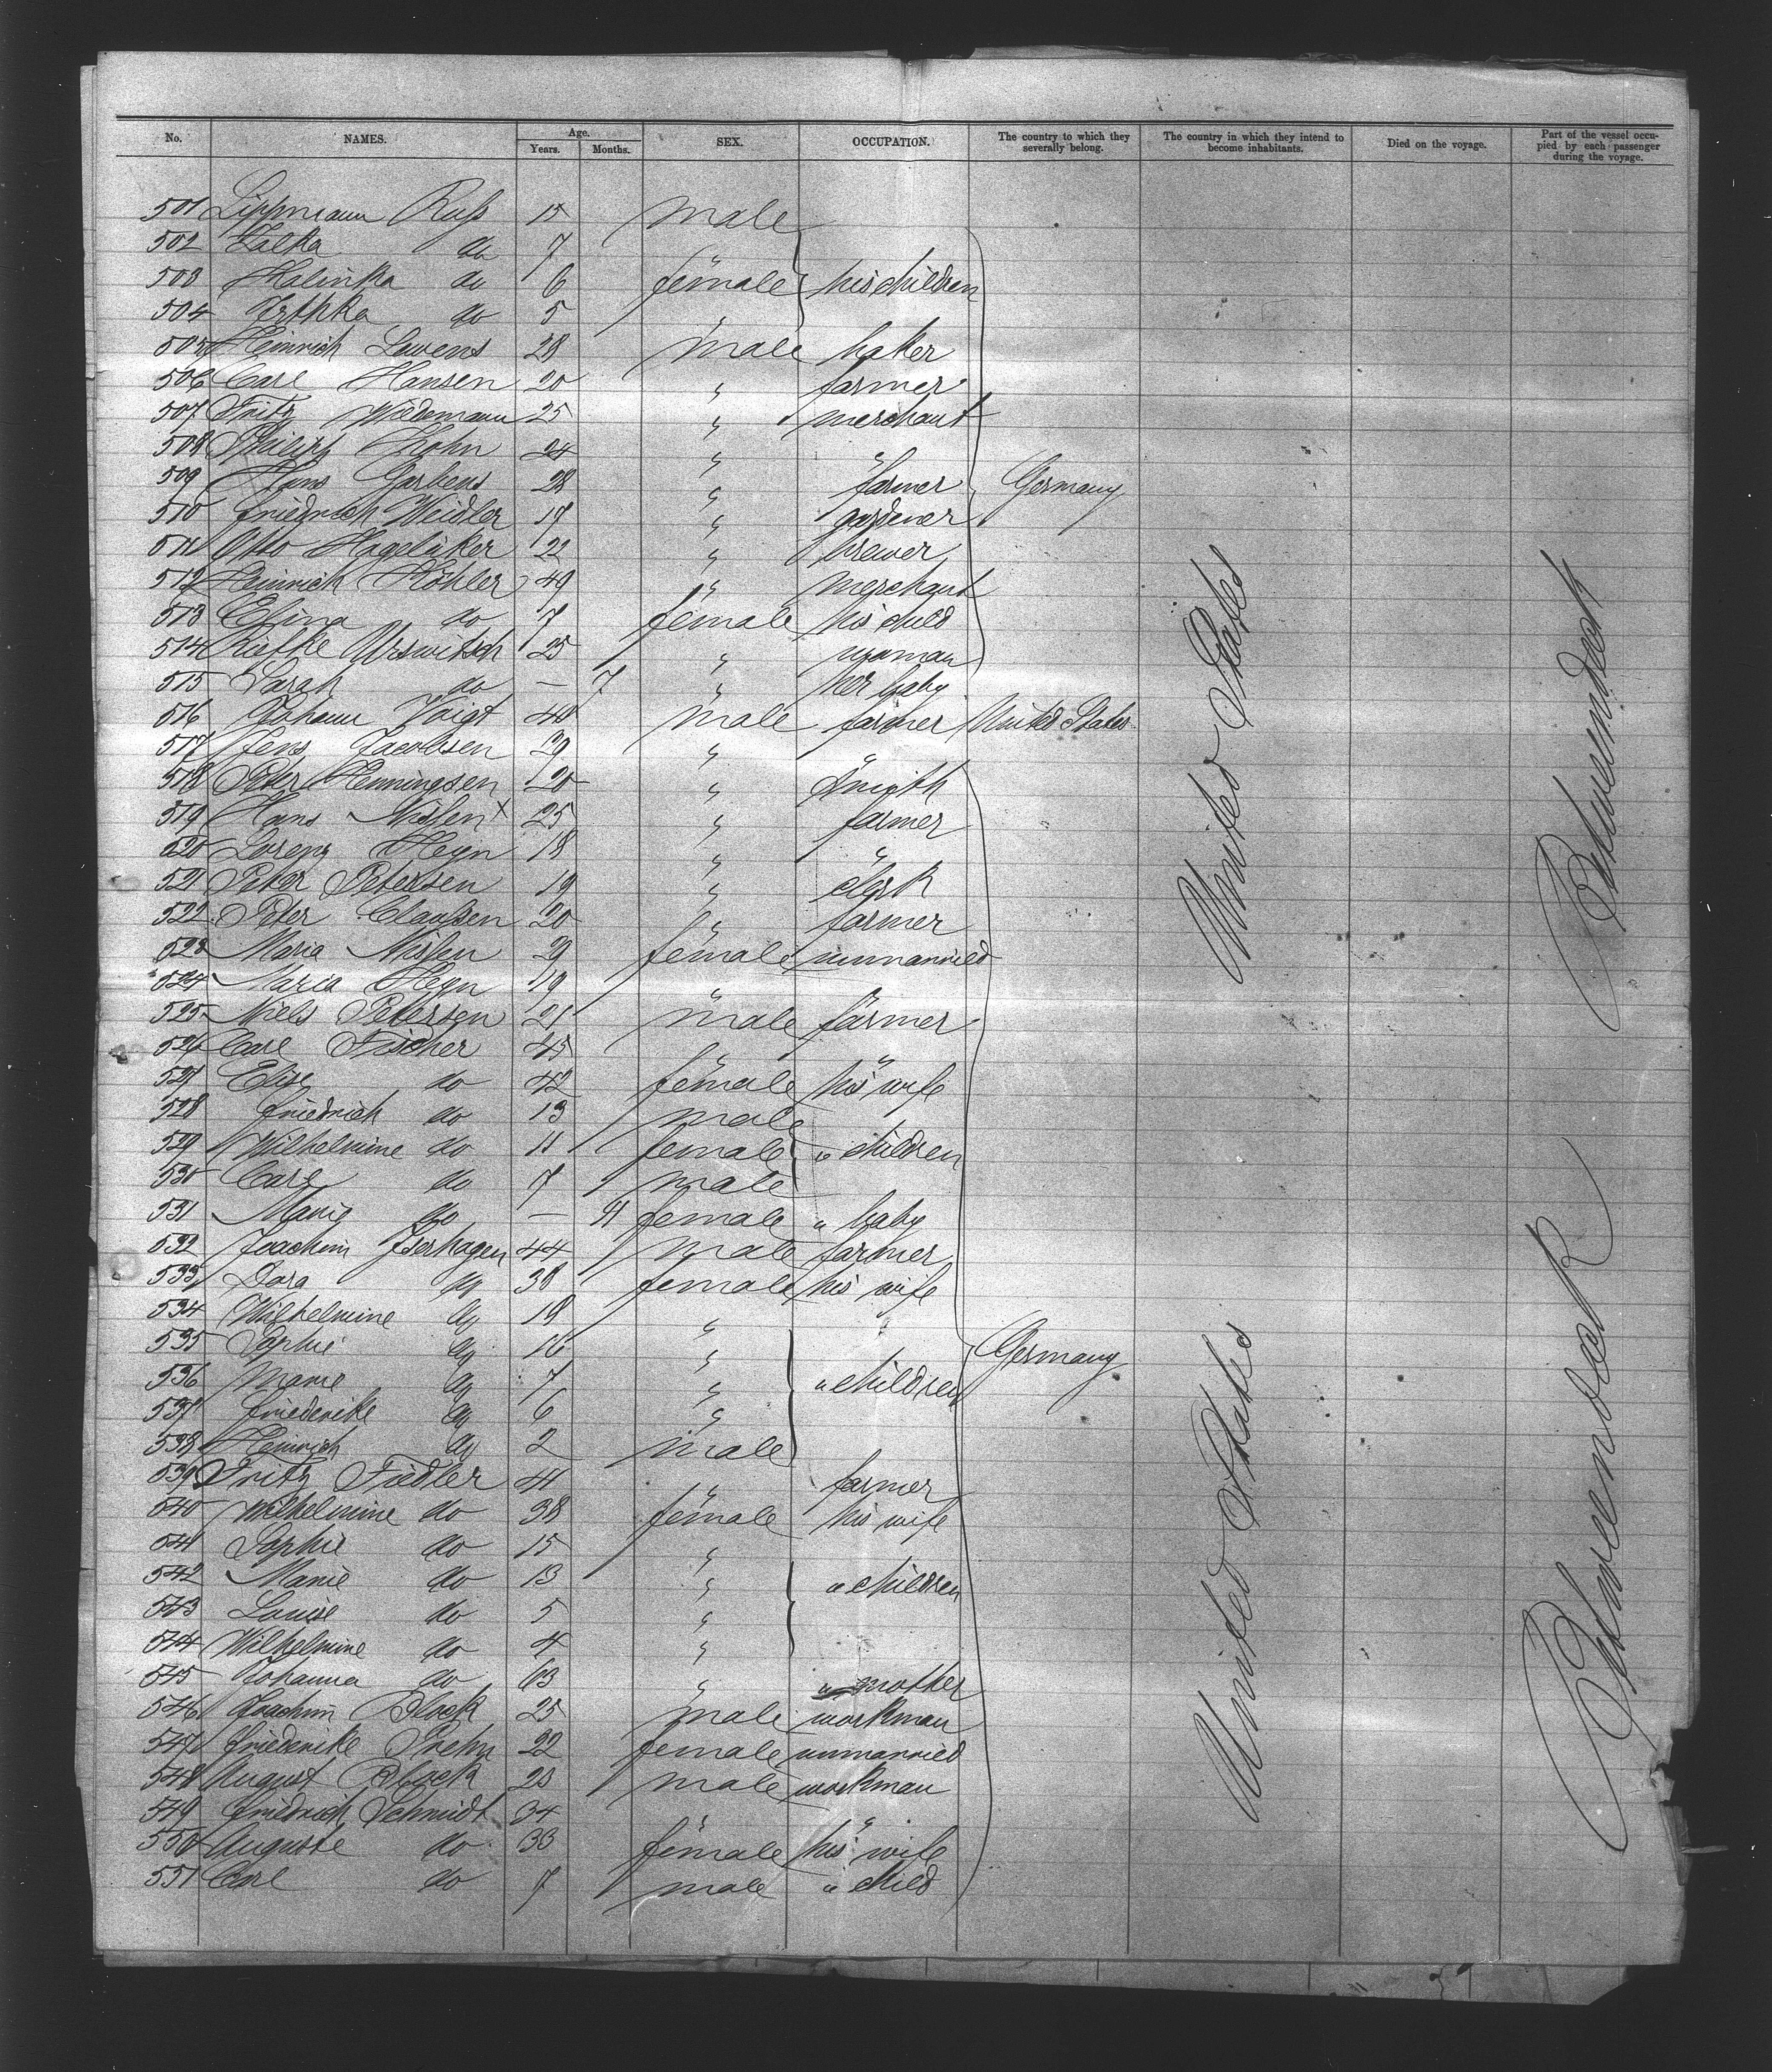 No. NAMES. Age. Years. Months. SEX. OCCUPATION. The country to which they severally belong. The country in which they intend to become inhabitants. Died on the voyage. Part of the vessel occupied by each passenger during the voyage.
501 Lippmann Ruß 15 male
502 do 7 "
503 Malinka do 6 female his children
504 do 5 "
505 Heinrich Lavens 28 male baker
506 Carl Hansen 20 " farmer
507 Fritz Wiedemann 25 " merchant
508 Philipp Kohn 24 " "
509 Hans Garbens 28 " farmer Germany
510 Friedrich Weidler 17 " gardener
511 Otto 22 " brewer
512 Heinrich Köhler 49 " merchant
513 do 7 female his child
514 25 " woman
515 Sarah do — 7 " her baby
516 Johann Voigt 48 male farmer United States
517 Jens Jacobsen 29 "
518 Peter Henningsen 20 " smith
519 Hans Nissen x 25 " farmer
520 Lorenz Heyn 18 " "
521 Peter Petersen 19 " clerk
522 Peter Claußen 20 " farmer
523 Maria Nissen 29 female unmarried
524 Maria Heyn 19 "
525 Niels Petersen 21 male farmer
526 Carl Fischer 45 " "
527 Elise do 42 female his wife
528 Friedrich do 13 male
529 Wilhelmine do 11 female " children
530 Carl do 7 male
531 Marie do — 11 female " baby
532 Joachim Iserhagen 44 male farmer
533 Dora do 38 female his wife
534 Wilhelmine do 18 "
535 Sophie do 16 " Germany
536 Marie do 7 " " children
537 Friederike do 6 "
538 Heinrich do 2 male
539 Fritz Fiedler 41 " farmer
540 Wilhelmine do 38 female his wife
541 Sophie do 15 "
542 Marie do 13 " " children
543 Louise do 5 "
544 Wilhelmine do 4 "
545 Johanna do 63 " " mother
546 Joachim Block 25 male workman
547 Friederike Prehn 22 female unmarried
548 August Block 23 male workman
549 Friedrich Schmidt 34 " "
550 Auguste do 33 female his wife
551 Carl do 7 male " child
United States
Betweendeck
United States
Betweendeck